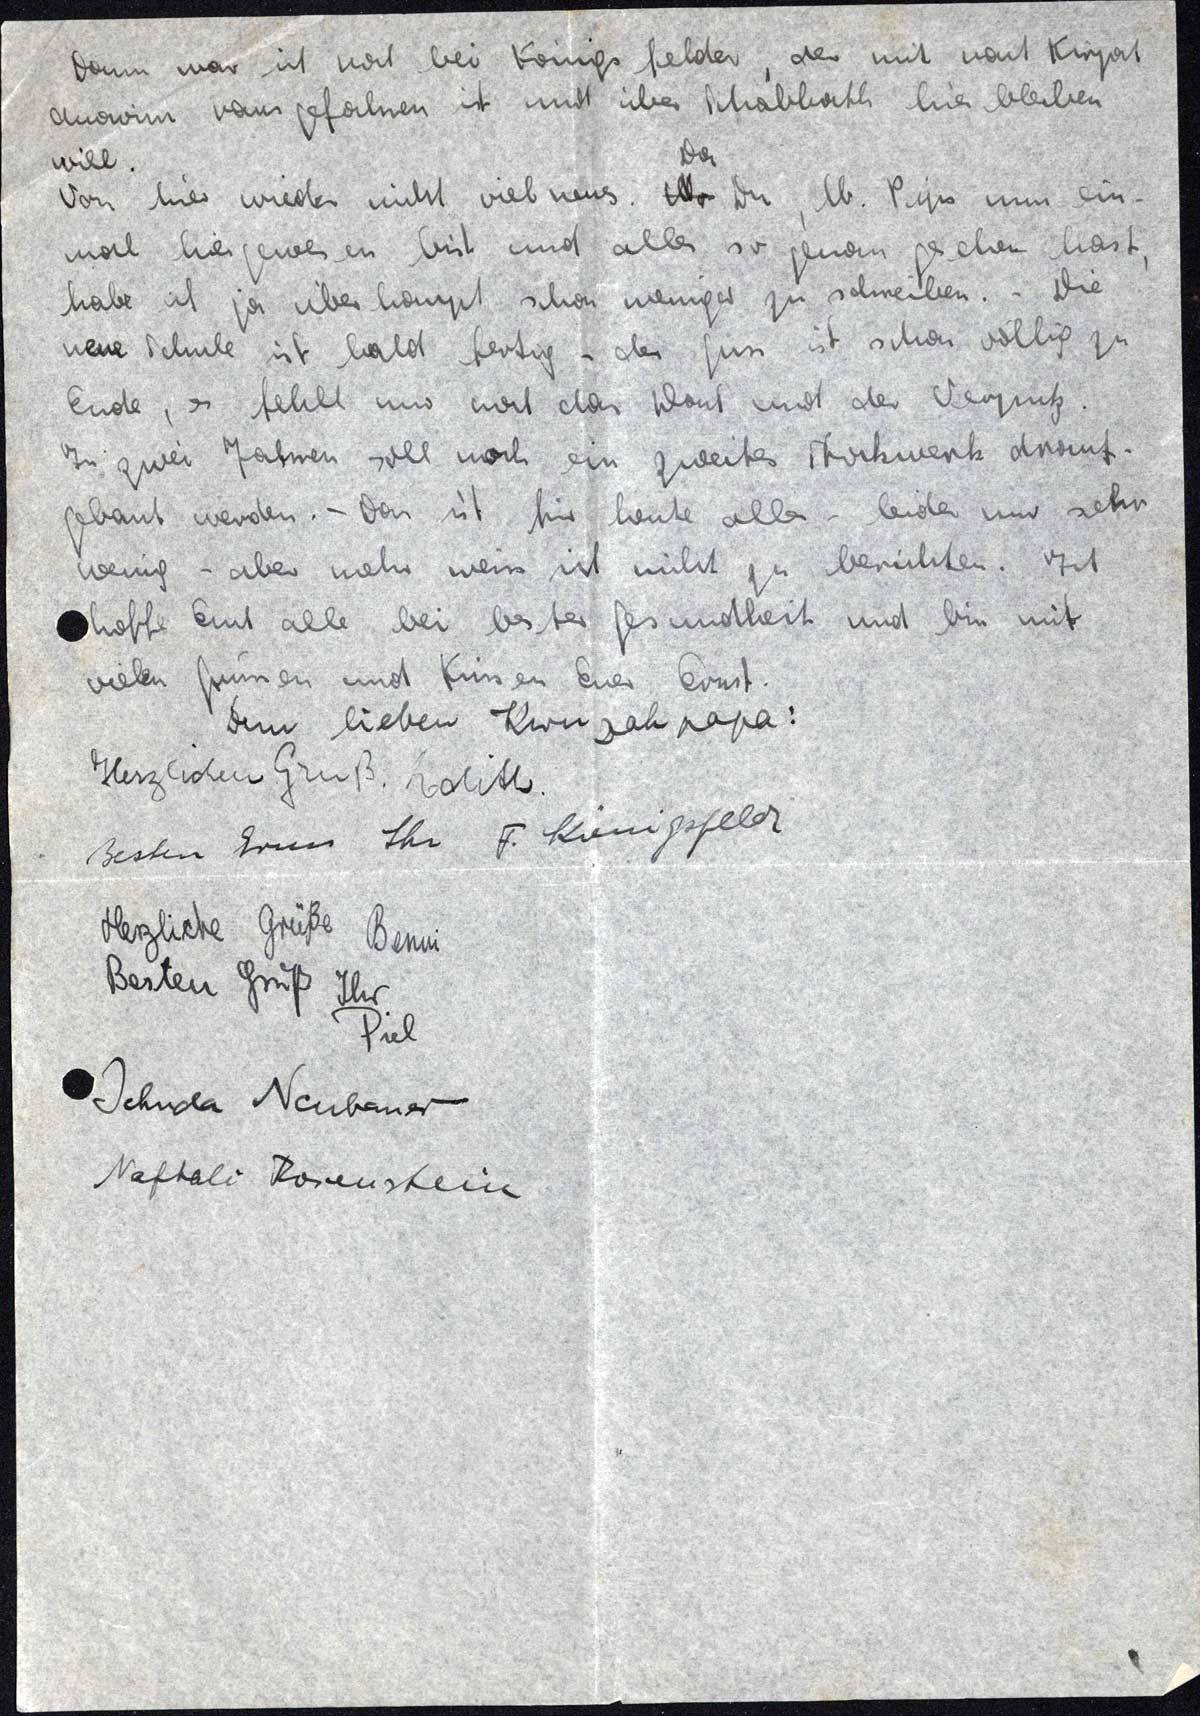 Dann war ich noch bei Königsfelder, der mit nach Kirjat
Anawim rausgefahren ist und über Schabbath hier bleiben
will.
Von hier wieder nicht viel neues. Da Du, lb. Paps nun ein-
mal hiergewesen bist und alles so genau gesehen hast,
habe ich ja überhaupt schon weniger zu schreiben. - Die
neue Schule ist bald fertig - der Guss ist schon völlig zu
Ende, es fehlt nur noch das Dach und der Verputz.
In zwei Jahren soll noch ein zweites Stockwerk drauf-
gebaut werden. - Das ist für heute alles - leider nur sehr
wenig - aber mehr weiss ich nicht zu berichten. Ich
hoffe Euch alle bei bester Gesundheit und bin mit
vielen Grüssen und Küssen Euer Ernst.
Dem lieben Kwuzahpapa:
Herzlichen Gruß. Edith.
Besten Gruss Ihr F. Königsfeld
Herzliche Grüße Benni
Besten Gruß Ihr
Piel
Jehuda Neubauer
Naftali Rosenstein